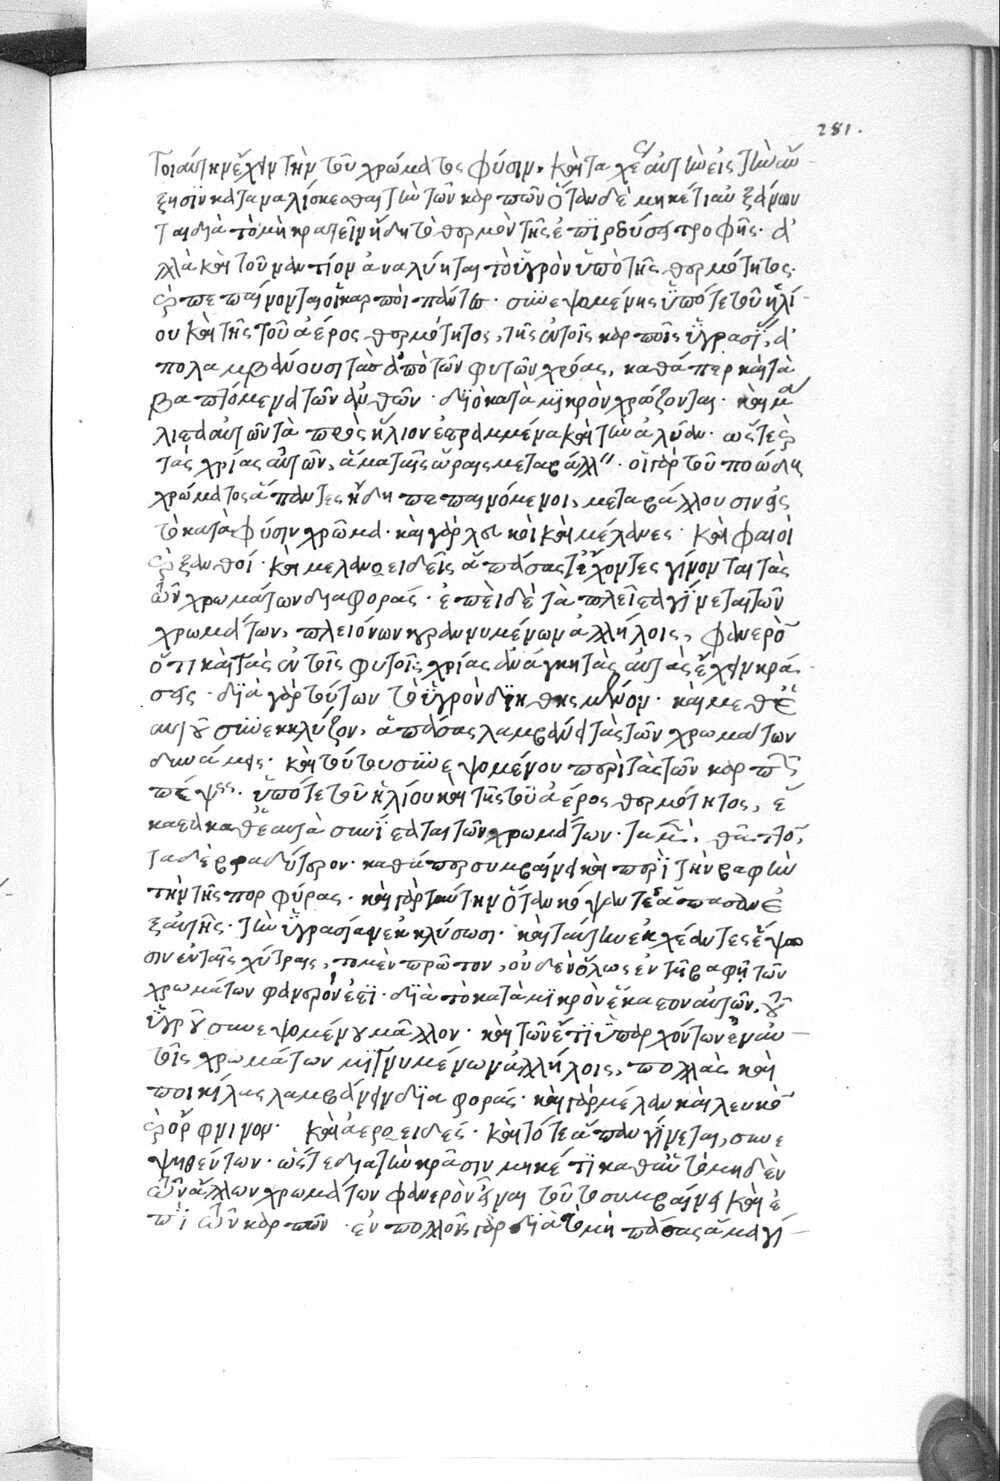 281.
τοιαύτην ἔχειν τὴν τοῦ χρώματος φύσιν. καὶ ταχεῖαν τὴν εἰς τὴν αὔ-
ξησιν καταναλίσκεσθαι τὴν τῶν καρπῶν ὅταν δὲ μηκέτι αὐξάνων
ται διὰ τὸ μὴ κρατεῖν ἤδη τὸ θερμὸν τῆς ἐπιρεύσης τροφῆς. ἀ
λλὰ καὶ τοὐναντίον ἀναλύηται τὸ ὑγρὸν ὑπὸ τῆς θερμότητος.
καὶ πεπαίνονται οἱ καρποὶ πάντες. συνεψομένης ὑπό τε τοῦ ἡλί-
ου καὶ τῆς τοῦ ἀέρος θερμότητος, τῆς ἐν τοῖς καρποῖς ὑγρασίας, ἀ
πολαμβάνουσι τὰς ἀπὸ τῶν φυτῶν χρόας, καθάπερ καὶ τὰ
βαπτόμενα τῶν ἀνθῶν. διὸ κατὰ μικρὸν χρώζονται. καὶ μά
λιστα αὐτῶν τὰ πρὸς ἥλιον ἐστραμμένα καὶ τὴν ἀλέαν. ὥστε καὶ
τὰς χρίας αὐτῶν, ἅμα ταῖς ὥραις μεταβάλλειν. οἱ γὰρ τοῦ ποώδη
χρώματος ἅπαντες ἤδη πεπαινόμενοι, μεταβάλλουσιν εἰς
τὸ κατὰ φύσιν χρῶμα. καὶ γὰρ λευκοὶ καὶ μέλανες. καὶ φαιοὶ
καὶ ξανθοί. καὶ μελανοειδεῖς ἁπάσας τε ἔχοντες γίνονται τὰς
τῶν χρωμάτων διαφοράς. ἐπεὶ δὲ τὰ πλεῖστα γίνεται τῶν
χρωμάτων, πλειόνων κεραννυμένων ἀλλήλοις, φανερὸν
ὅτι καὶ τὰς ἐν τοῖς φυτοῖς χρίας ἀνάγκη τὰς αὐτὰς ἔχειν κρά-
σεις. διὰ γὰρ τούτων τὸ ὑγρὸν διηθούμενον. καὶ μεθ' ἑ
αυτοῦ συνεκκλύζον, ἁπάσας λαμβάνει τὰς τῶν χρωμάτων
δυνάμεις. καὶ τούτου συνεψομένου περὶ τὰς τῶν καρπῶν
πέψεις. ὑπό τε τοῦ ἡλίου καὶ τῆς τοῦ ἀέρος θερμότητος, ἕ
καστα καθ' ἑαυτὰ συνίσταται τῶν χρωμάτων. τὰ μὲν, θᾶττον,
τὰ δὲ βραδύτερον. καθάπερ συμβαίνει καὶ περὶ τὴν βαφὴν
τὴν τῆς πορφύρας. καὶ γὰρ ταύτην ὅταν κόψαντες ἅπασαν ἐ
ξ αὐτῆς. τὴν ὑγρασίαν ἐκκλύσωσι. καὶ ταύτην ἐκχέαντες ἕψω
σιν ἐν ταῖς χύτραις, τὸ μὲν πρῶτον, οὐδὲν ὅλως ἐν τῇ βαφῇ τῶν
χρωμάτων φανερόν ἐστι. διὰ τὸ κατὰ μικρὸν ἕκαστον αὐτῶν, τοῦ
ὑγροῦ συνεψομένου μᾶλλον. καὶ τῶν ἔτι ὑπαρχόντων ἐν αὐ-
τοῖς χρωμάτων μιγνυμένων ἀλλήλοις, πολλὰς καὶ
ποικίλας λαμβάνειν διαφοράς. καὶ γὰρ μέλαν καὶ λευκὸν
καὶ ὄρφνινον. καὶ ἀεροειδές. καὶ τότε ἅπαν γίνεται, συνε
ψηθέντων. ὥστε διὰ τὴν κρᾶσιν μηκέτι καθ' αὑτὸ μηδὲν
τῶν ἄλλων χρωμάτων φανερὸν εἶναι τοῦτο συμβαίνει καὶ ἐ
πὶ τῶν καρπῶν. ἐν πολλοῖς γὰρ διὰ τὸ μὴ πάσας ἅμα γί-